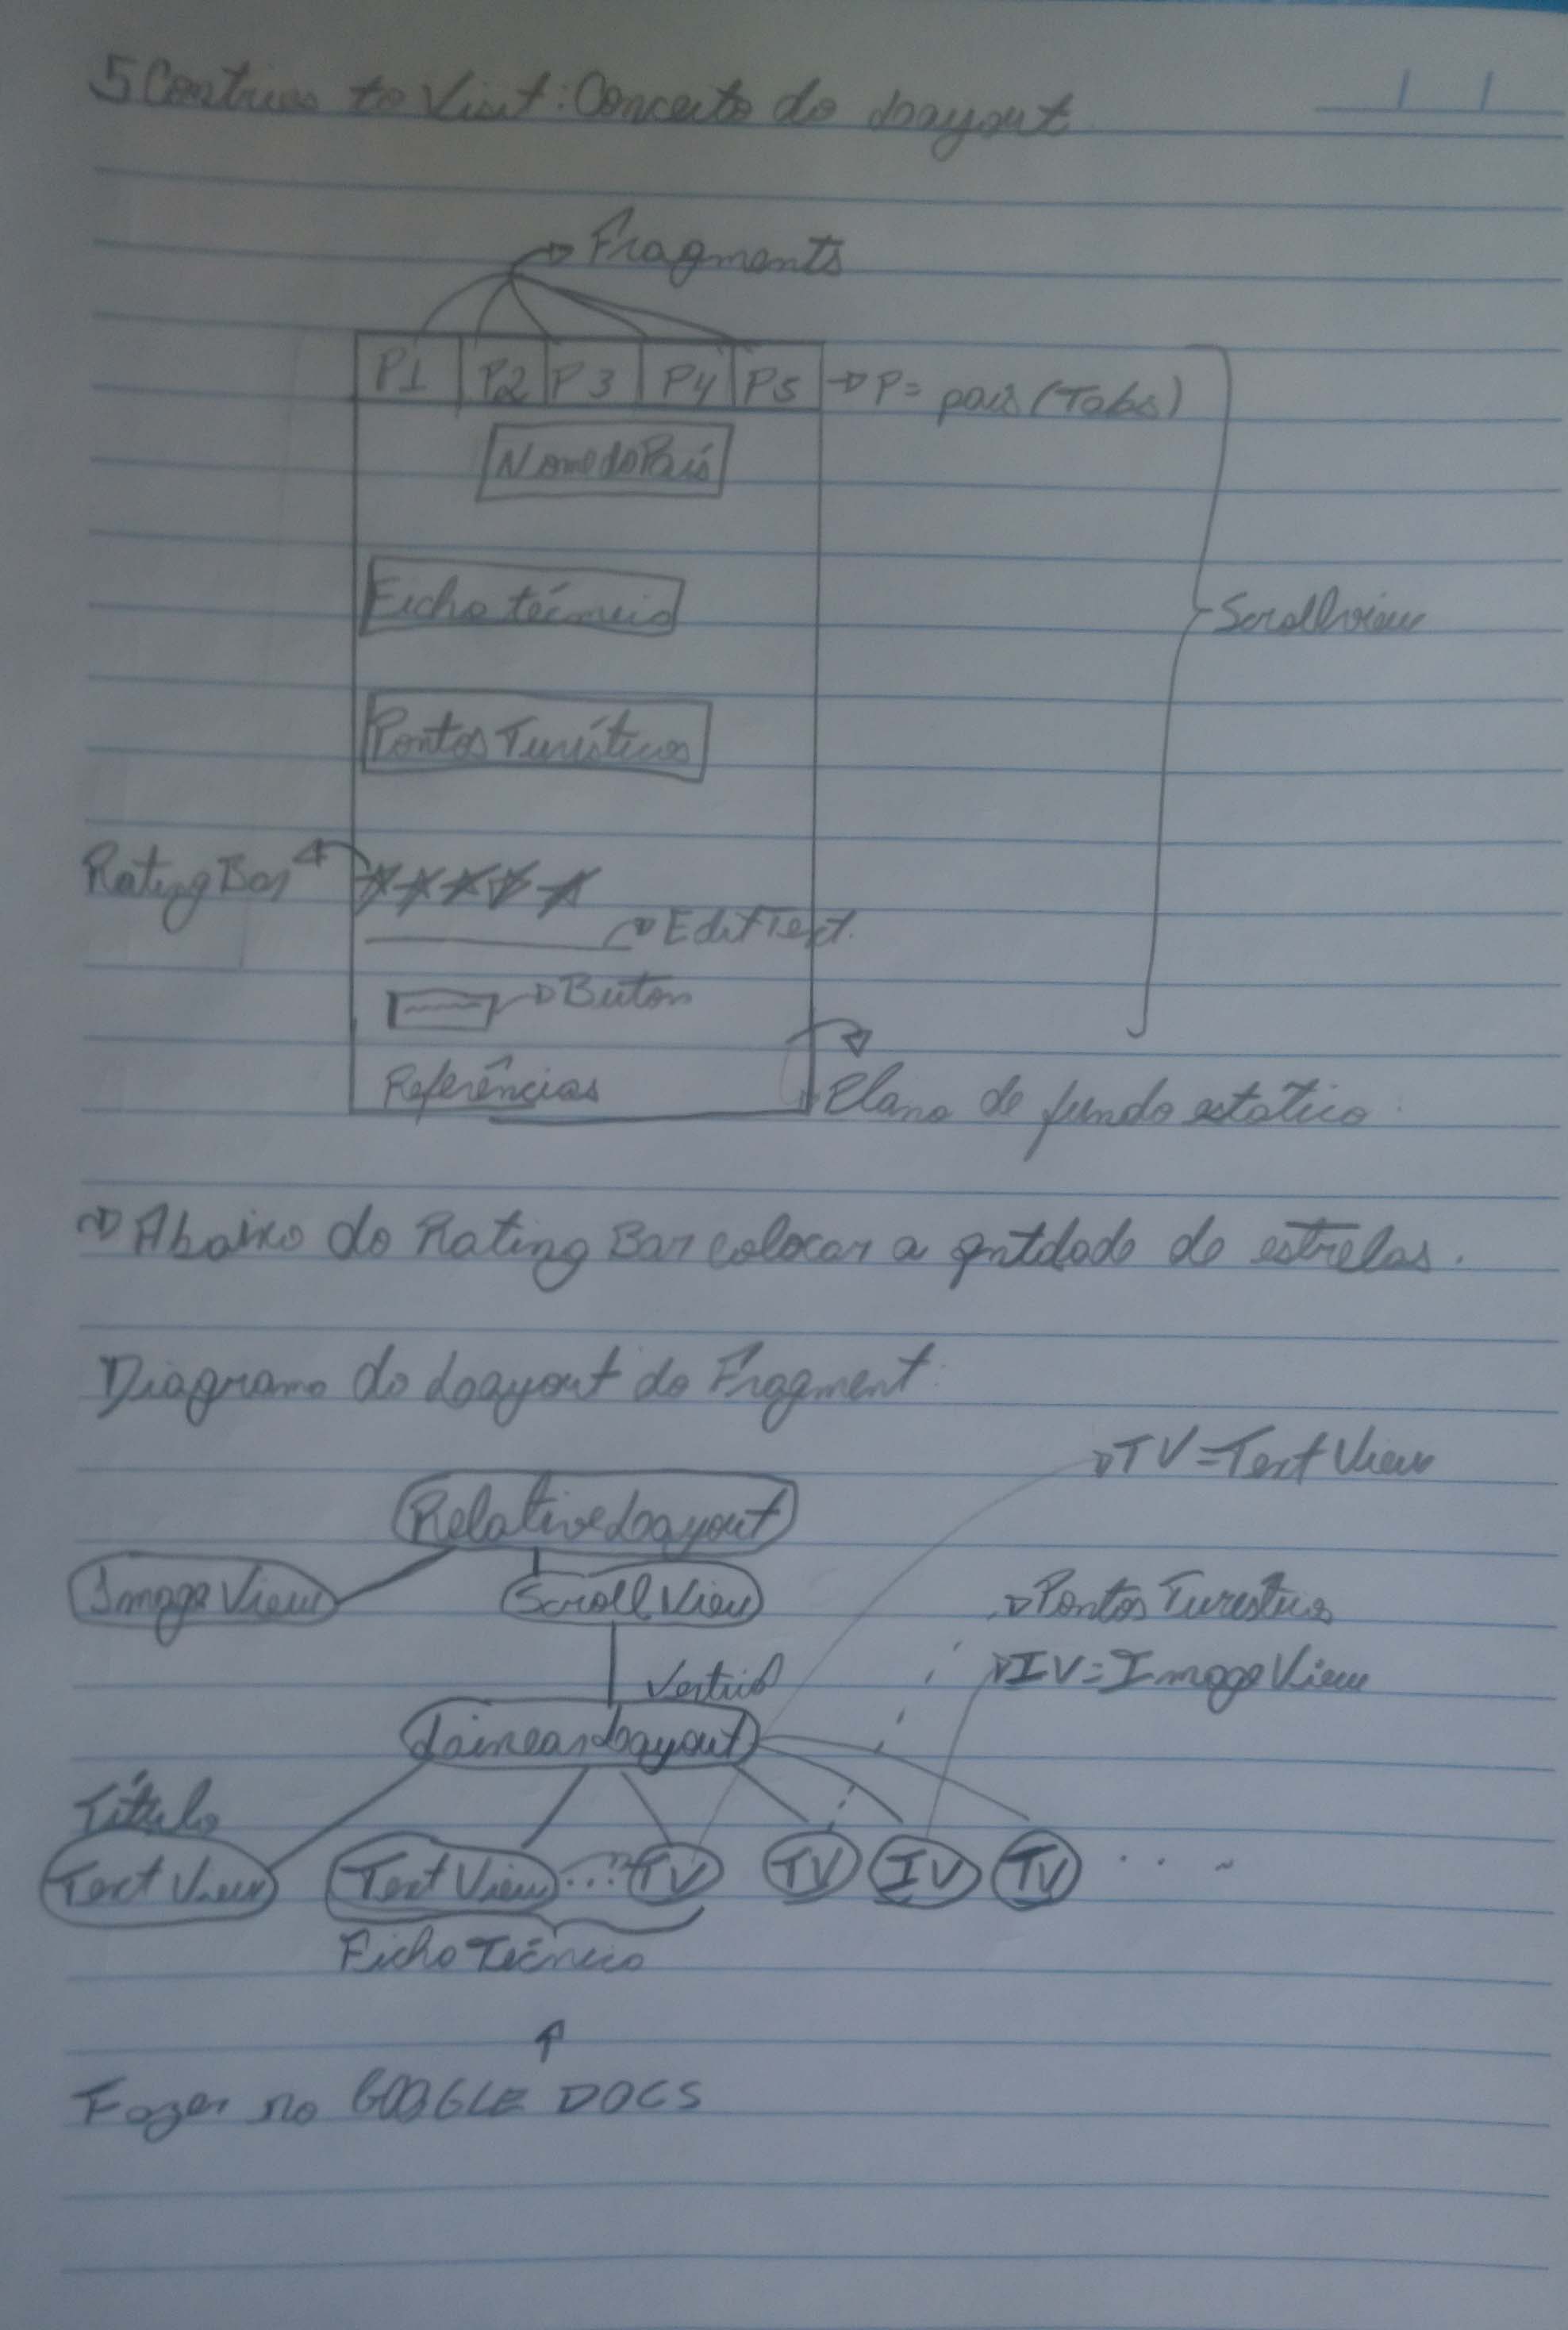 5 Contries to Visit: Conceito do Layout
Fragments
P1 P2 P3 P4 P5 P = país (Tabs)
Nome do País
Ficha técnica
Scrollview
Pontos Turísticos
Rating Bar
EditText
Buton
Referências
Plano de fundo estático
Abaixo do Rating Bar colocar a qntdade de estrelas.
Diagrama do Layout do Fragment:
TV = Text View
RelativeLayout
Image View
Scroll View
Pontos Turisticos
IV = Image View
Vertical
LinearLayout
Título
Text View
Text View ... TV TV IV TV ...
Ficha Técnica
Fazer no GOOGLE DOCS